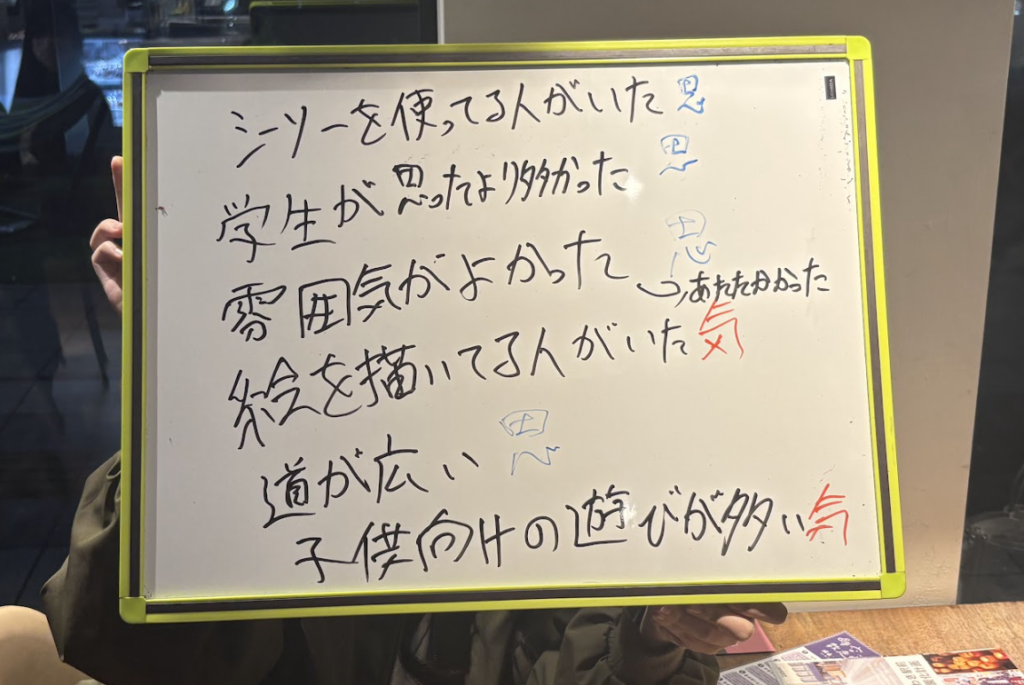 シーソーを使ってる人がいた 思
学生が思ったより多かった 思
雰囲気がよかった 思
→あたたかかった
絵を描いてる人がいた 気
道が広い 思
子供向けの遊びが多い 気